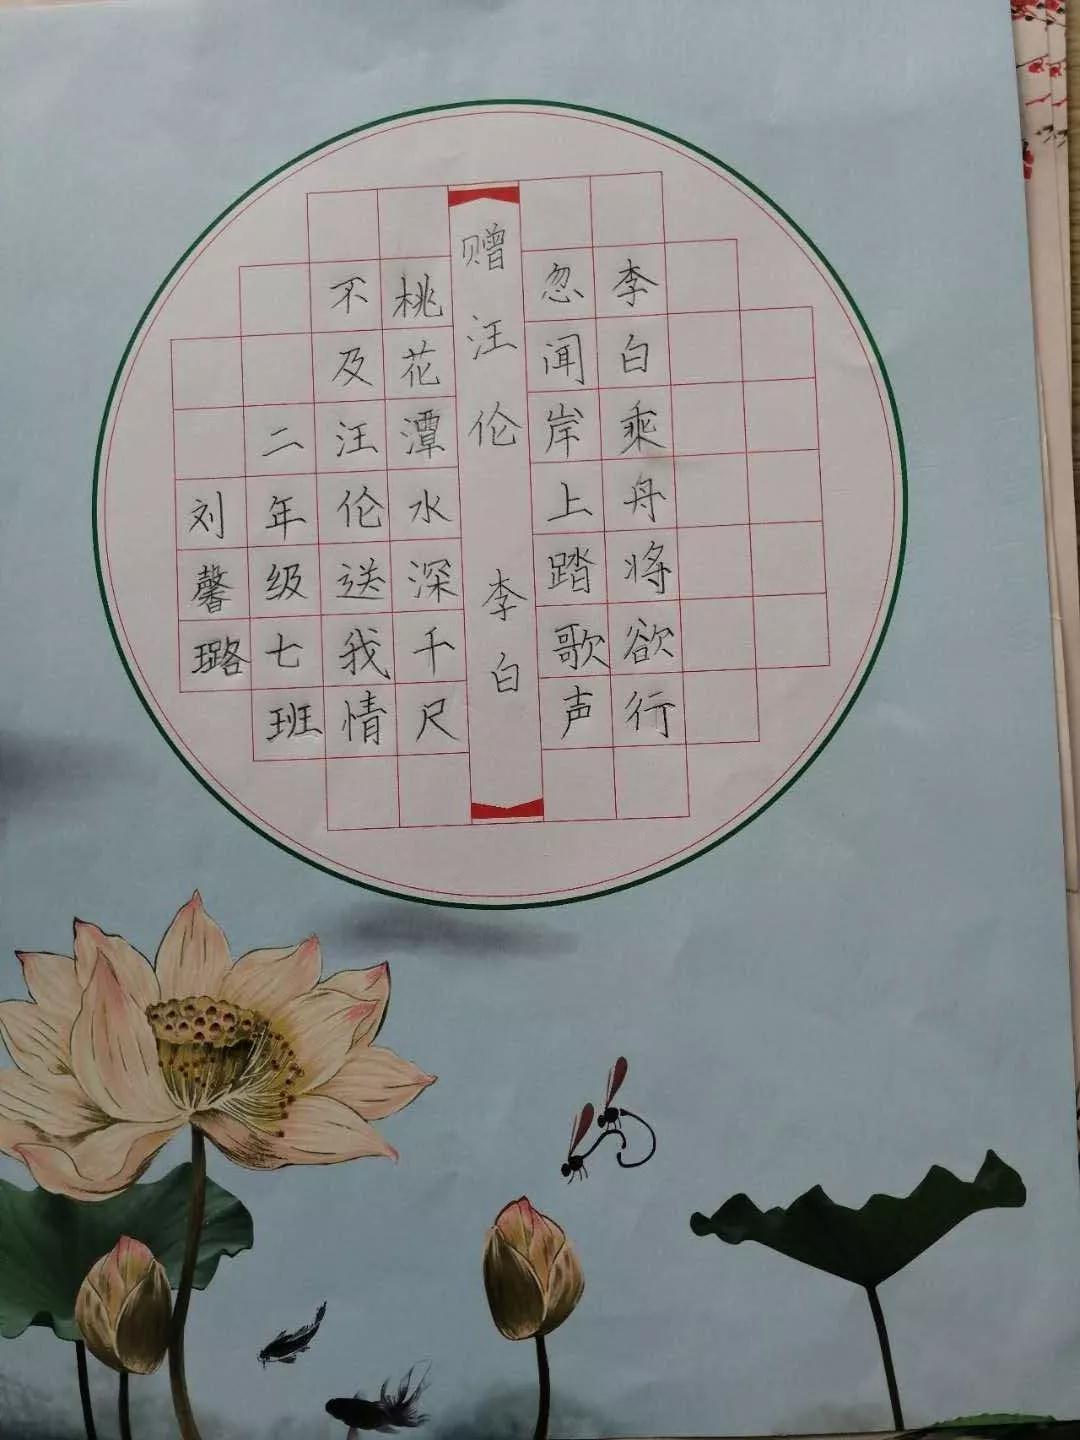 李白乘舟将欲行
忽闻岸上踏歌声
赠汪伦 李白
桃花潭水深千尺
不及汪伦送我情
二年级七班
刘馨璐